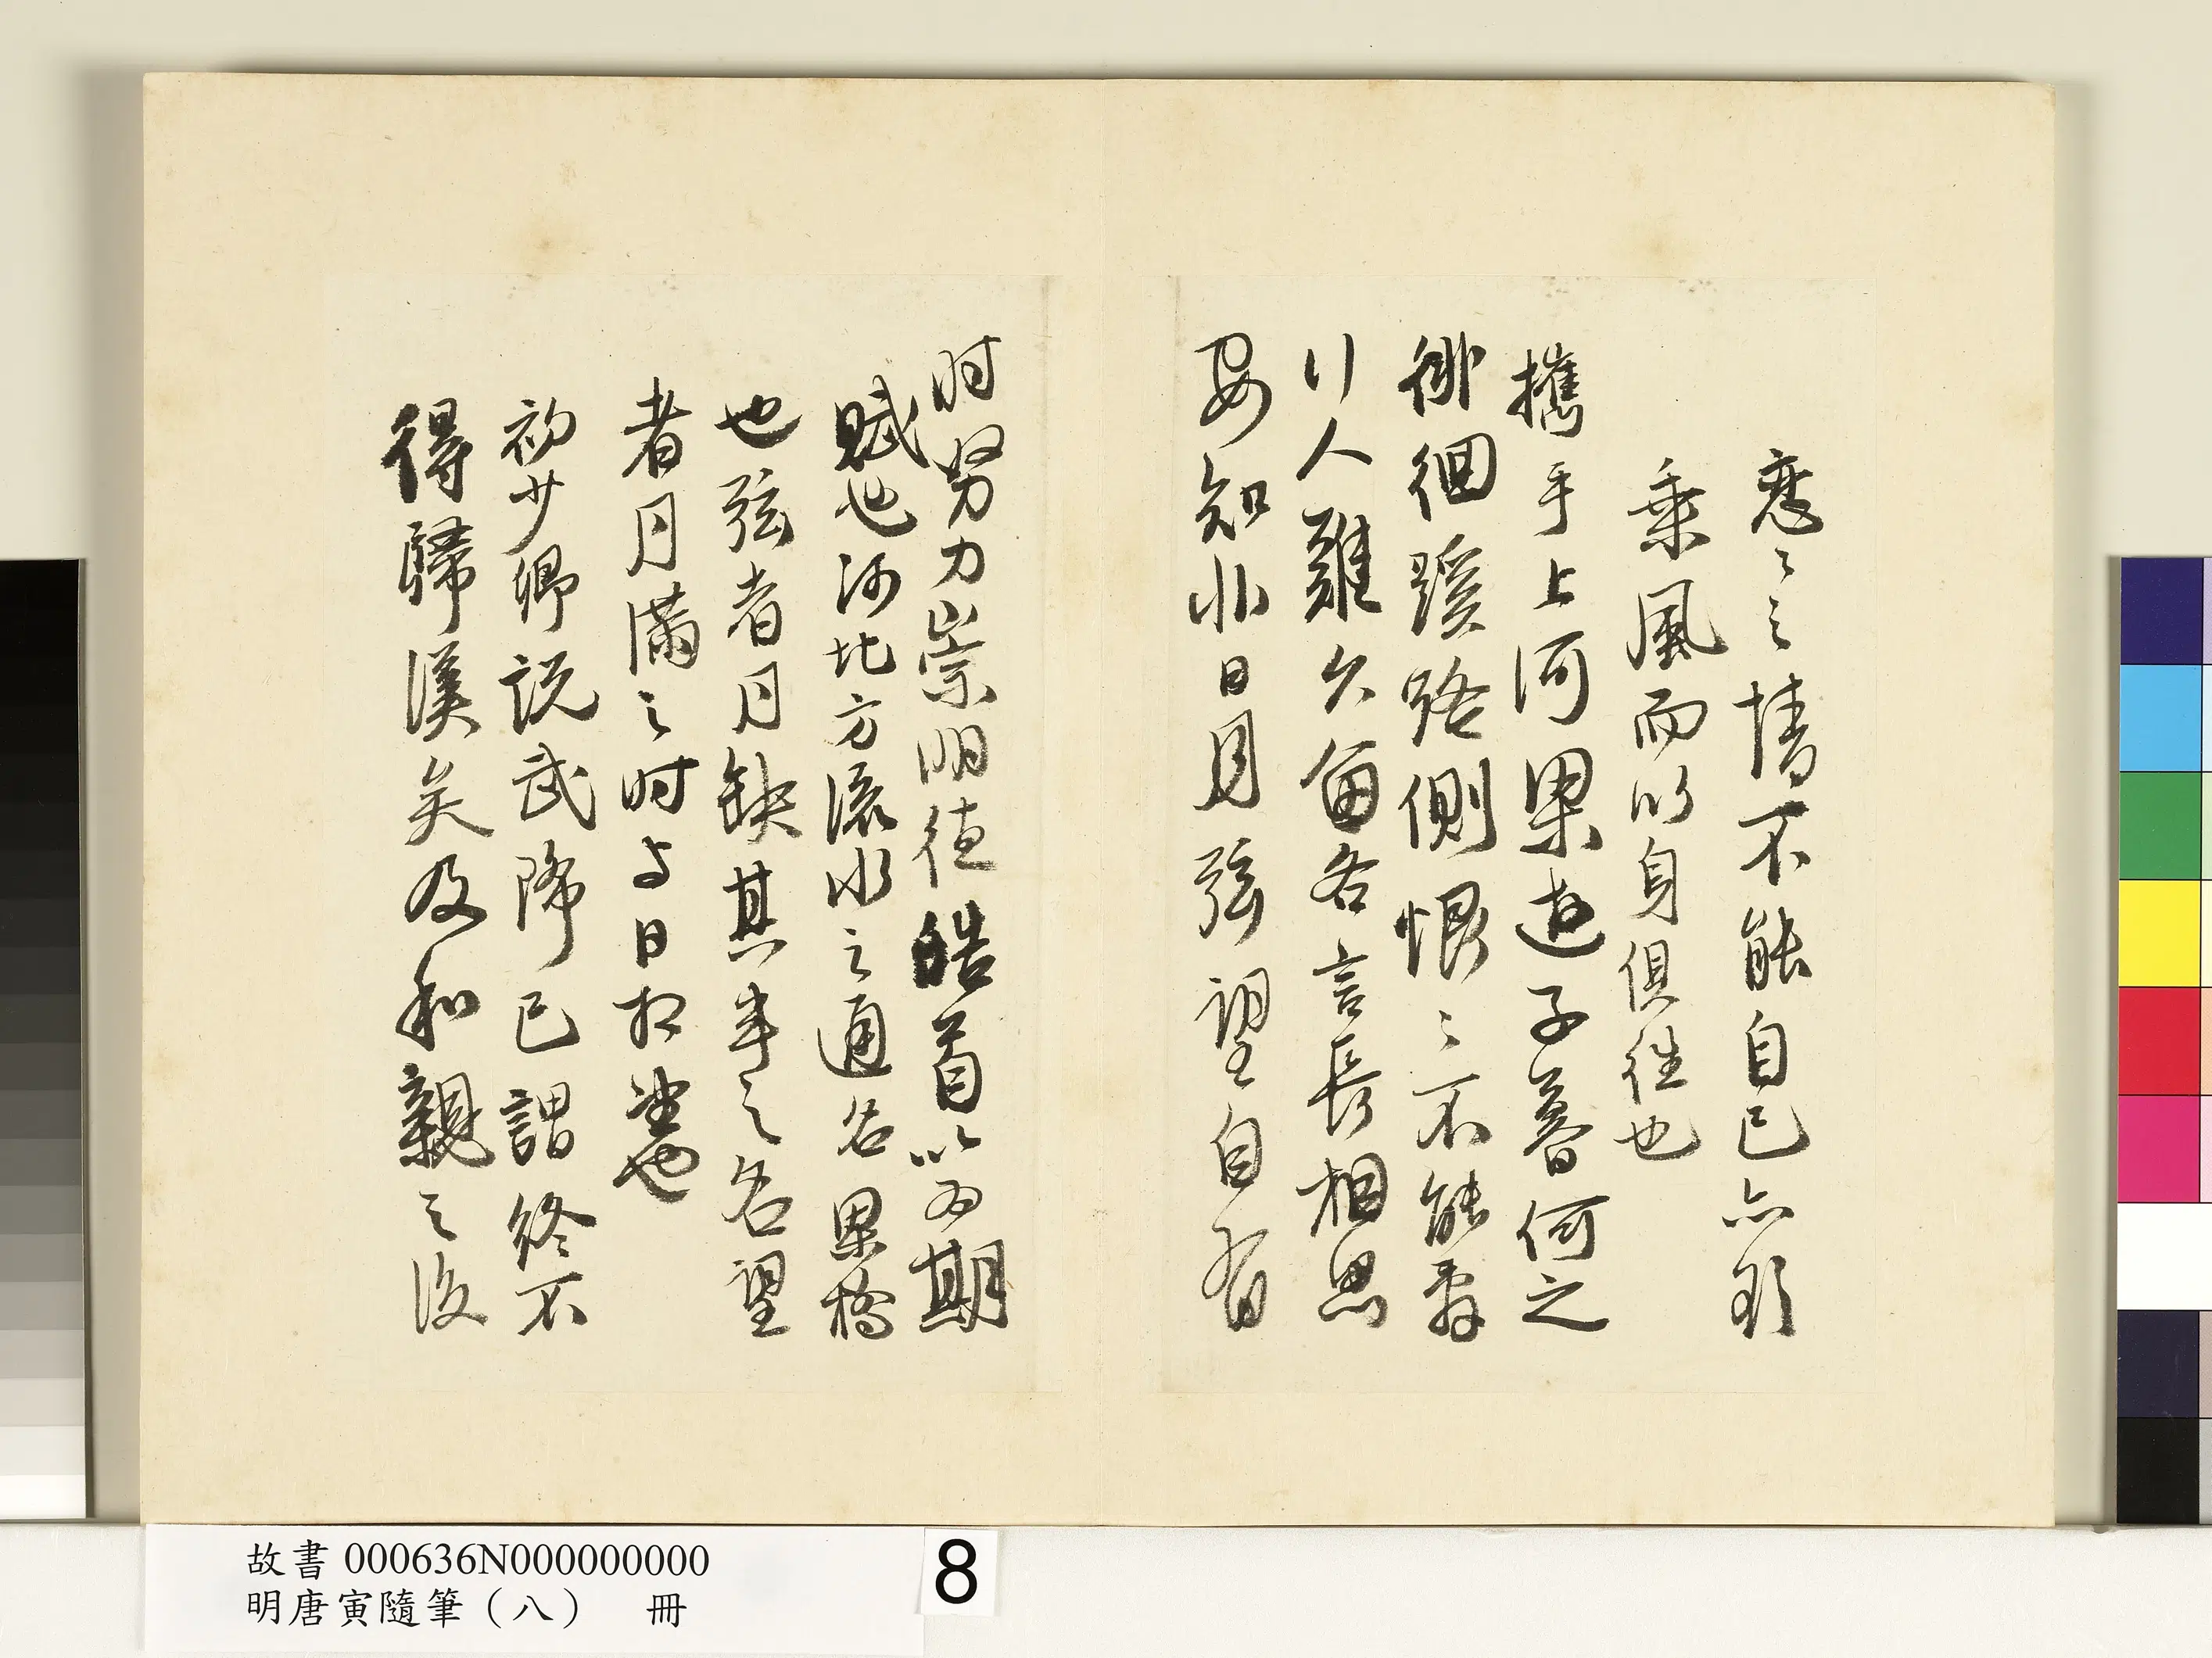 戀〻之情不能自已亦欲
乘風而以身俱往也
攜手上河梁遊子暮何之
徘徊蹊路側恨〻不能辭
行人難久留各言長相思
安知非日月弦望自有
时努力崇明德皓首以为期
賦也河北方流水之通名梁橋
也弦者月缺其半之名望
者月滿之时与日相望也
初少卿説武降已謂終不
得歸漢矣及和親之後
故書 000636N000000000
明唐寅隨筆（八） 冊
8